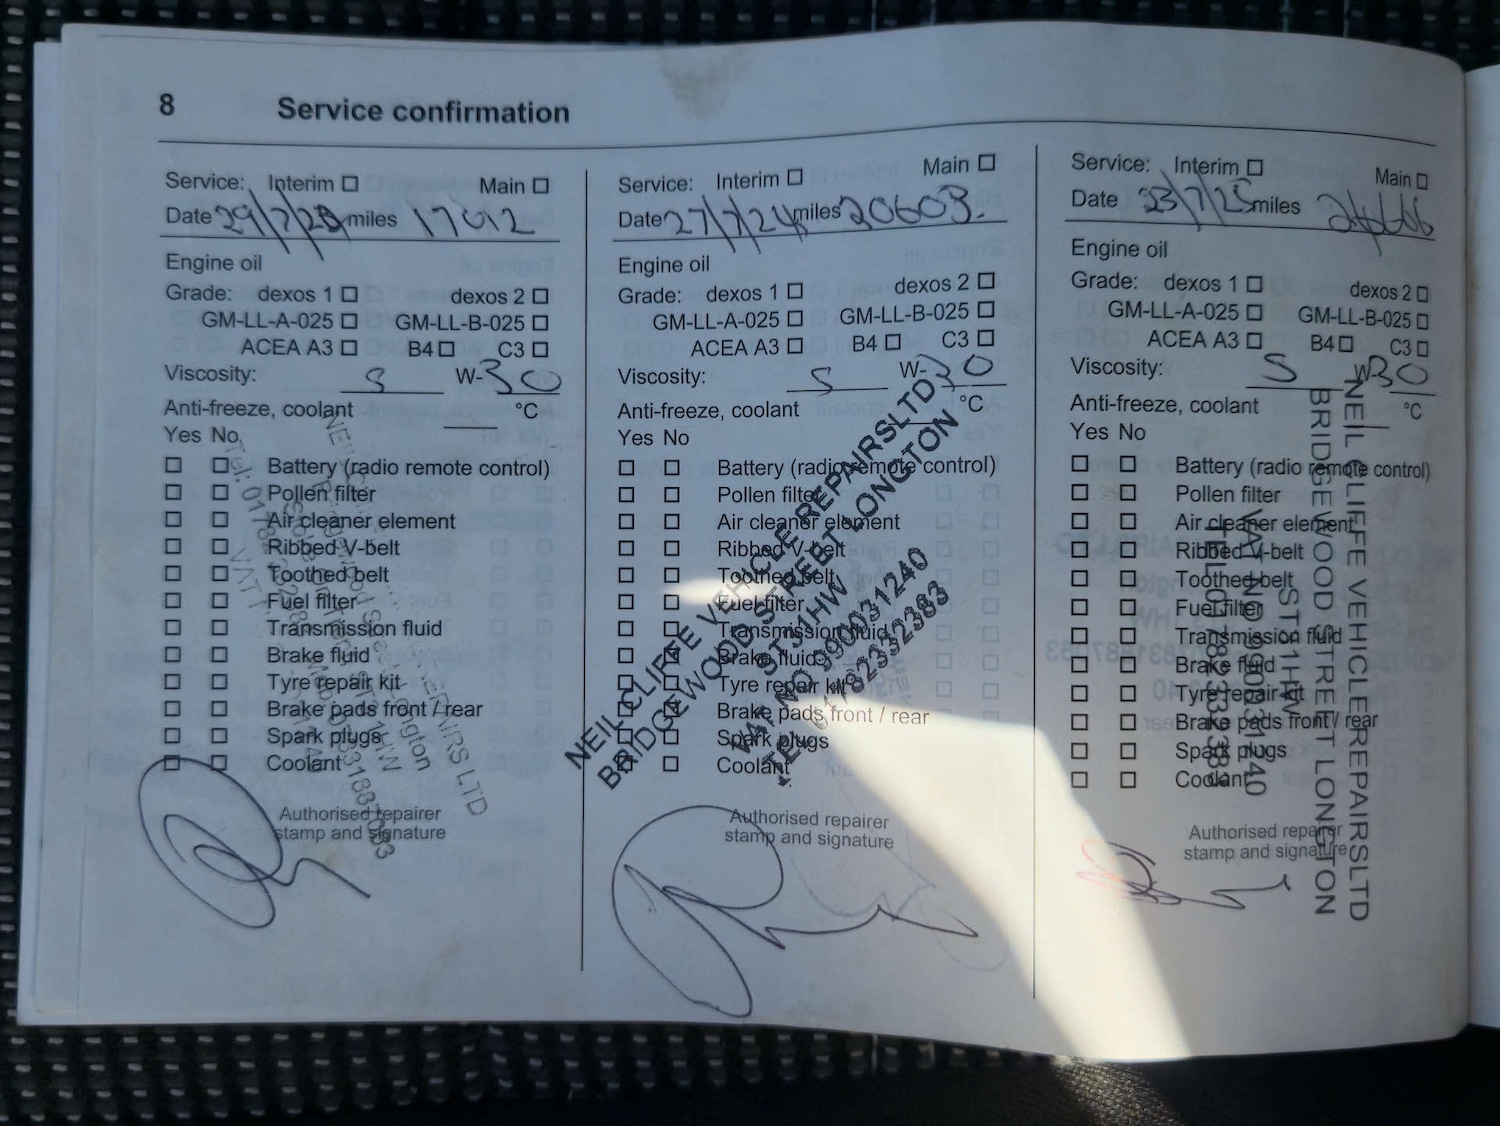 8 Service confirmation
Service: Interim ☐ Main ☐
Date 29/7/23 miles 17012
Engine oil
Grade: dexos 1 ☐ dexos 2 ☐
GM-LL-A-025 ☐ GM-LL-B-025 ☐
ACEA A3 ☐ B4 ☐ C3 ☐
Viscosity: 5 W-30
Anti-freeze, coolant °C
Yes No
☐ ☐ Battery (radio remote control)
☐ ☐ Pollen filter
☐ ☐ Air cleaner element
☐ ☐ Ribbed V-belt
☐ ☐ Toothed belt
☐ ☐ Fuel filter
☐ ☐ Transmission fluid
☐ ☐ Brake fluid
☐ ☐ Tyre repair kit
☐ ☐ Brake pads front / rear
☐ ☐ Spark plugs
☐ ☐ Coolant
Authorised repairer
stamp and signature
Service: Interim ☐ Main ☐
Date 27/7/24 miles 20603.
Engine oil
Grade: dexos 1 ☐ dexos 2 ☐
GM-LL-A-025 ☐ GM-LL-B-025 ☐
ACEA A3 ☐ B4 ☐ C3 ☐
Viscosity: 5 W-30
Anti-freeze, coolant °C
Yes No
☐ ☐ Battery (radio remote control)
☐ ☐ Pollen filter
☐ ☐ Air cleaner element
☐ ☐ Ribbed V-belt
☐ ☐ Toothed belt
☐ ☐ Fuel filter
☐ ☐ Transmission fluid
☐ ☐ Brake fluid
☐ ☐ Tyre repair kit
☐ ☐ Brake pads front / rear
☐ ☐ Spark plugs
☐ ☐ Coolant
NEIL CLIFFE VEHICLE REPAIRSLTD
BRIDGEWOOD STREET LONGTON
ST31HW
VAT NO 990031240
TEL 01782332383
Authorised repairer
stamp and signature
Service: Interim ☐ Main ☐
Date 23/7/25 miles
Engine oil
Grade: dexos 1 ☐ dexos 2 ☐
GM-LL-A-025 ☐ GM-LL-B-025 ☐
ACEA A3 ☐ B4 ☐ C3 ☐
Viscosity: 5 W-30
Anti-freeze, coolant °C
Yes No
☐ ☐ Battery (radio remote control)
☐ ☐ Pollen filter
☐ ☐ Air cleaner element
☐ ☐ Ribbed V-belt
☐ ☐ Toothed belt
☐ ☐ Fuel filter
☐ ☐ Transmission fluid
☐ ☐ Brake fluid
☐ ☐ Tyre repair kit
☐ ☐ Brake pads front / rear
☐ ☐ Spark plugs
☐ ☐ Coolant
NEIL CLIFFE VEHICLE REPAIRSLTD
BRIDGEWOOD STREET LONGTON
ST31HW
VAT NO 990031240
TEL 01782332383
Authorised repairer
stamp and signature